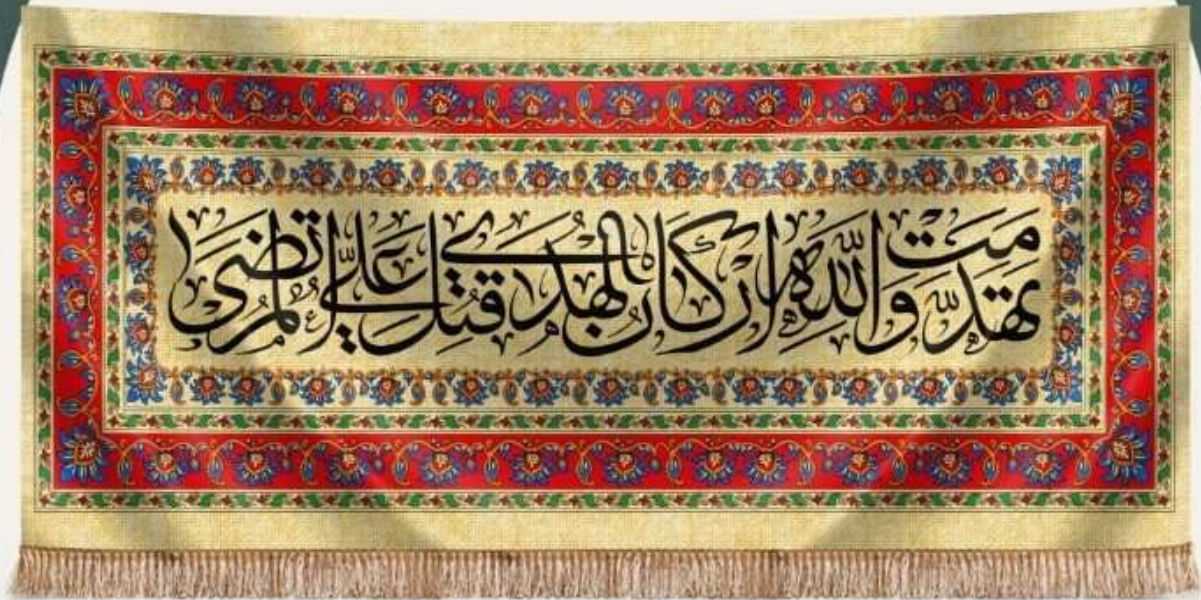 تَهَدَّمَتْ وَاللّٰهِ اَرْکَانُ الْهُدىٰ قُتِلَ عَلِیٌّ الْمُرْتَضىٰ